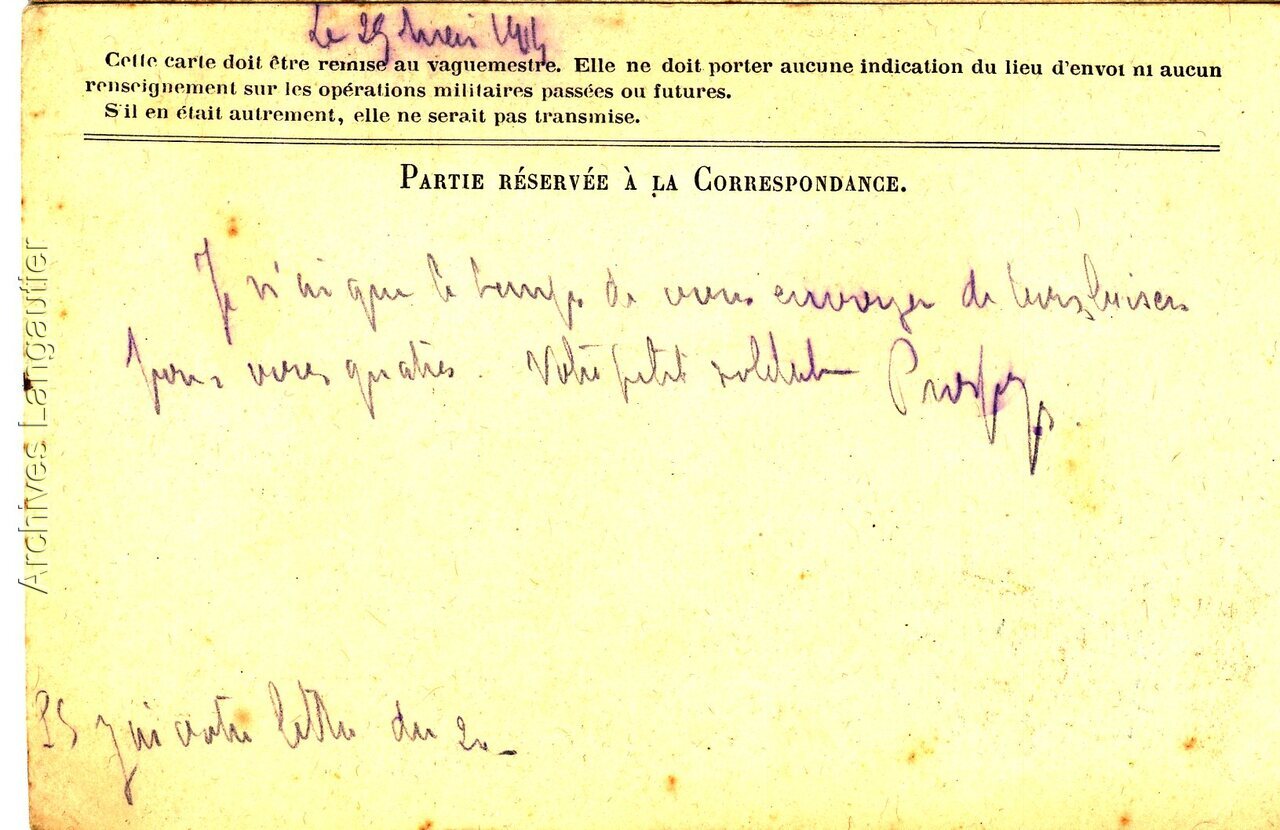 Le 29 mai 191
Cette carte doit être remise au vaguemestre. Elle ne doit porter aucune indication du lieu d'envoi ni aucun
renseignement sur les opérations militaires passées ou futures.
S'il en était autrement, elle ne serait pas transmise.
PARTIE RÉSERVÉE À LA CORRESPONDANCE.
Je n'ai que le temps de vous envoyer de
pour vous quatres. Votre petit soldat
PS j'ai votre lettre du 2
Archives Langautier